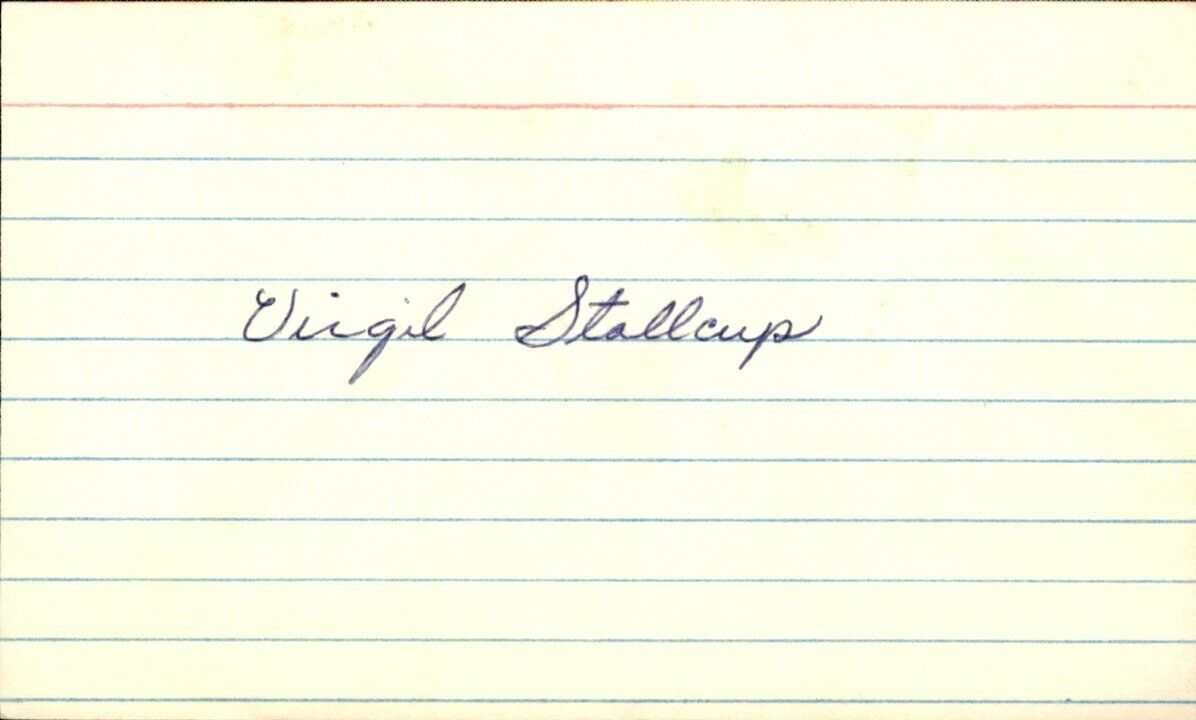 Virgil Stallcup